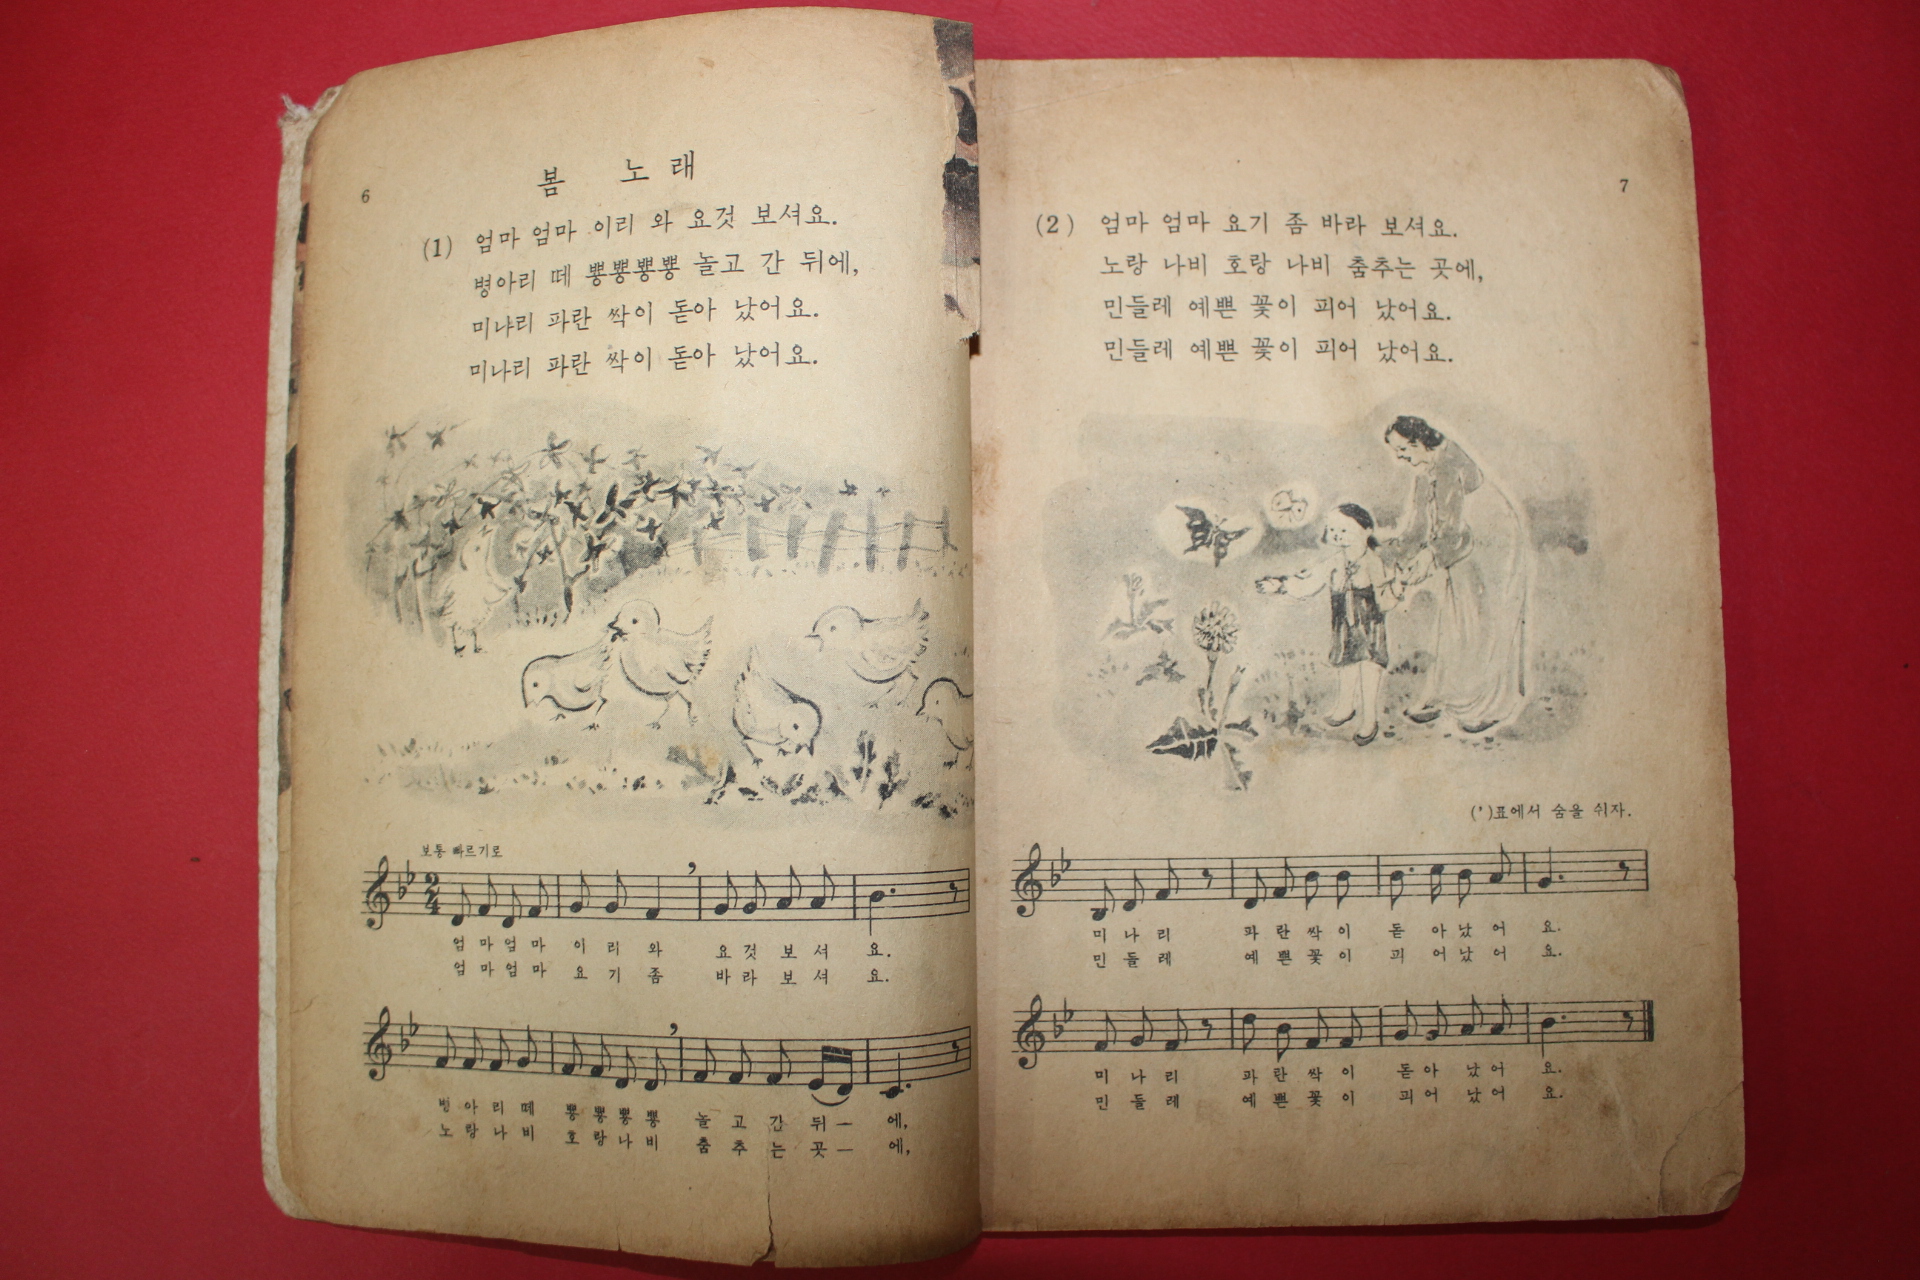 6
봄 노래
(1) 엄마 엄마 이리 와 요것 보셔요.
병아리 떼 뿅뿅뿅뿅 놀고 간 뒤에,
미나리 파란 싹이 돋아 났어요.
미나리 파란 싹이 돋아 났어요.
보통 빠르기로
2/4
엄 마 엄 마 이 리 와 요 것 보 셔 요.
엄 마 엄 마 요 기 좀 바 라 보 셔 요.
병 아 리 떼 뿅 뿅 뿅 뿅 놀 고 간 뒤 — 에,
노 랑 나 비 호 랑 나 비 춤 추 는 곳 — 에,
7
(2) 엄마 엄마 요기 좀 바라 보셔요.
노랑 나비 호랑 나비 춤추는 곳에,
민들레 예쁜 꽃이 피어 났어요.
민들레 예쁜 꽃이 피어 났어요.
(❜)표에서 숨을 쉬자.
미 나 리 파 란 싹 이 돋 아 났 어 요.
민 들 레 예 쁜 꽃 이 피 어 났 어 요.
미 나 리 파 란 싹 이 돋 아 났 어 요.
민 들 레 예 쁜 꽃 이 피 어 났 어 요.